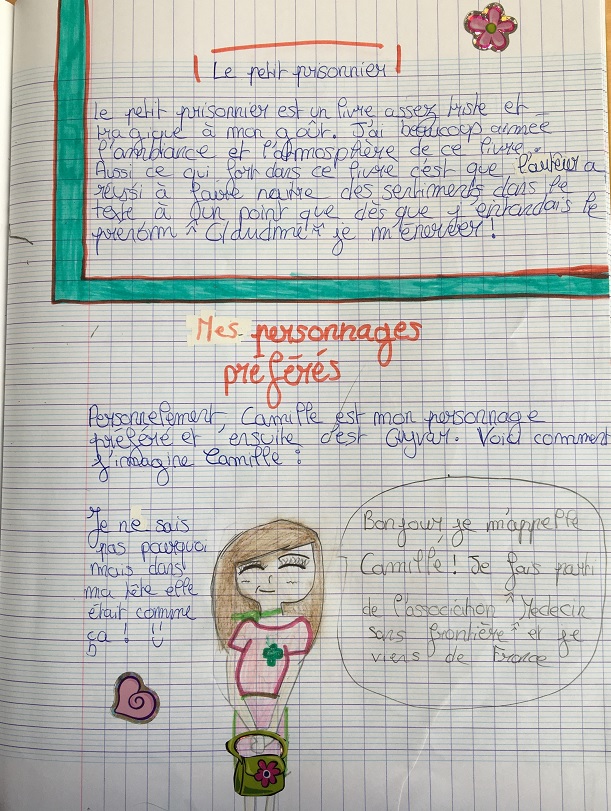 Le petit prisonnier
Le petit prisonnier est un livre assez triste et
tragique à mon goût. J'ai beaucoup aimée
l'ambiance et l'atmosphère de ce livre.
Aussi ce qui fort dans ce livre c'est que l'auteur a
réussi à faire naitre des sentiments dans le
texte à un point que dès que j'entandais le
prenom " " je m'énerver!
Mes personnages
préférés
Personnelement, Camille est mon personnage
préféré et ensuite c'est Gyvar. Voici comment
j'imagine Camille :
Je ne sais
pas pourquoi
mais dans
ma tête elle
était comme
ça !
Bonjour je m'appelle
Camille! Je fais parti
de l'association "Medecin
sans frontière" et je
viens de France